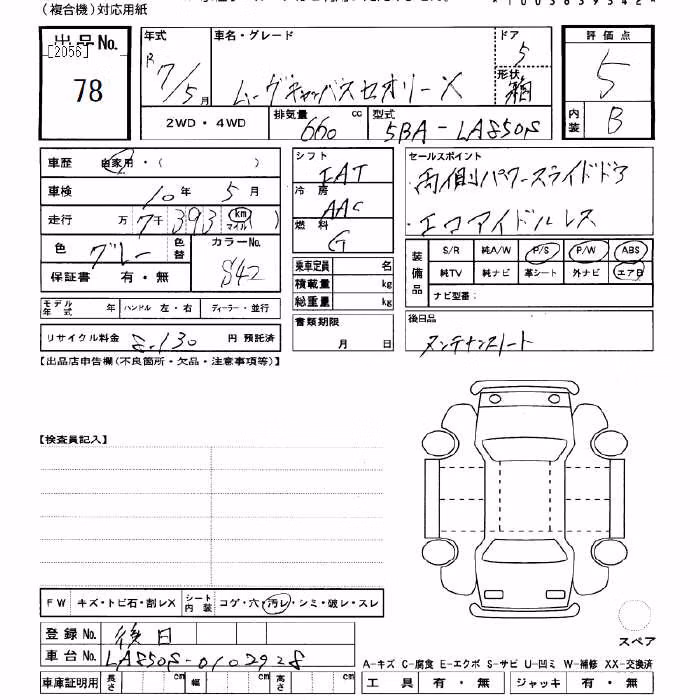 (複合機)対応用紙
出品No.
[2056]
78
年式
R7/5月
車名・グレード
ムーヴキャンバスセオリーX
ドア
5
形状
箱
評価点
5
内装
B
2WD・4WD
排気量
660 cc
型式
5BA-LA850S
車歴 自家用・( )
車検 10年5月
走行 万7千393 km マイル )
色 グレー 色替
カラーNo.
S42
保証書 有・無
シフト
IAT
冷房
AAC
燃料
G
乗車定員 名
積載量 kg
総重量 kg
書類期限
月 日
セールスポイント
・両側パワースライドドア
・エコアイドルレス
装備品
S/R 純A/W P/S P/W ABS
純TV 純ナビ 革シート 外ナビ エアB
ナビ型番:
後日品
メンテナンスノート
モデル年式 年 ハンドル 左・右 ディーラー・並行
リサイクル料金 8.130 円 預託済
【出品店申告欄(不良箇所・欠品・注意事項等)】
【検査員記入】
FW キズ・トビ石・割レX シート内装 コゲ・穴・汚レ・シミ・破レ・スレ
登録No. 後日
車台No. LA850S-0102928
車庫証明用 長さ cm 幅 cm 高さ cm
スペア
A-キズ C-腐食 E-エクボ S-サビ U-凹ミ W-補修 XX-交換済
工具 有・無 ジャッキ 有・無